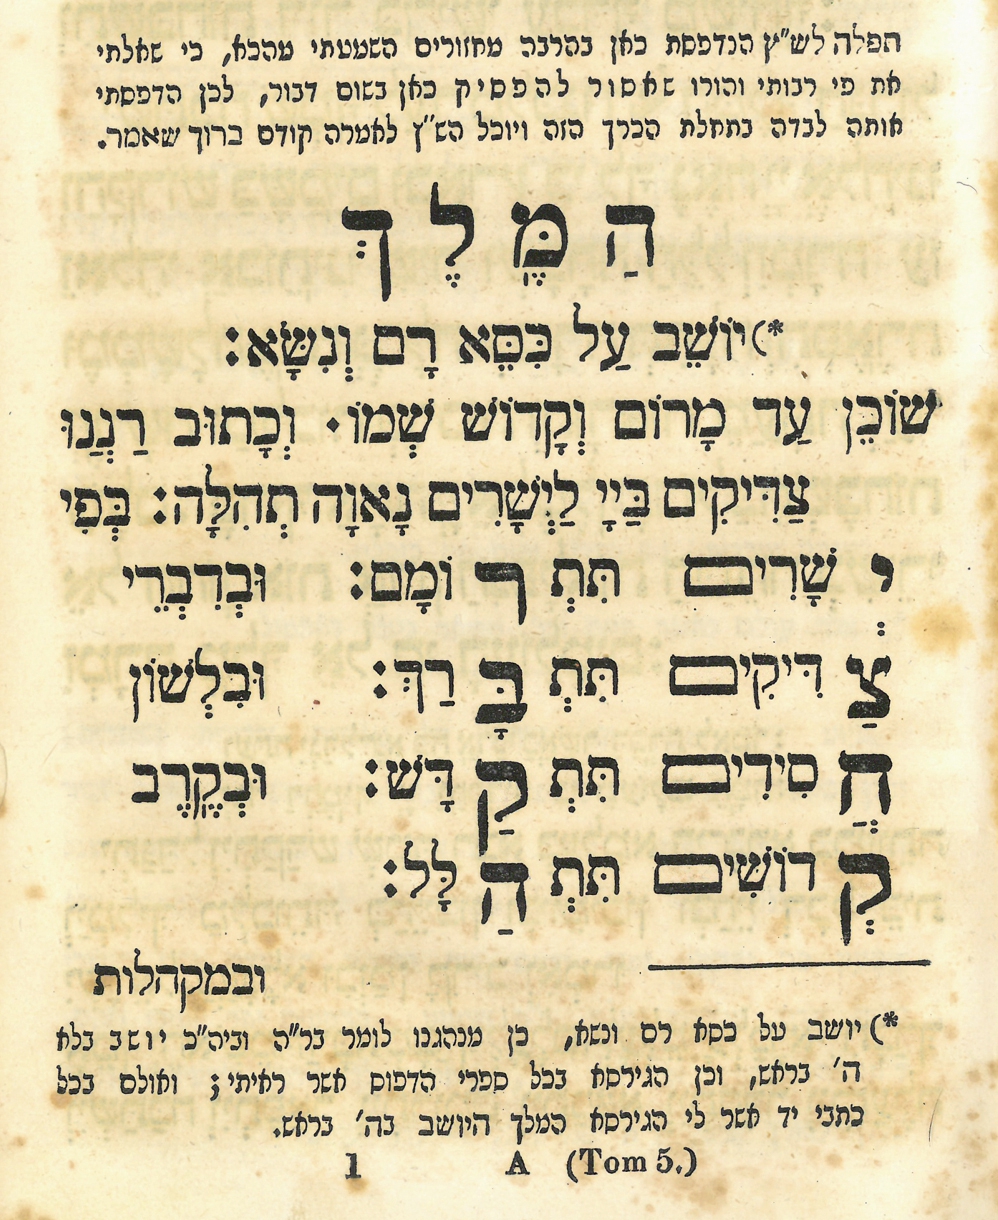 תפלה לש"ץ הנדפסת כאן בהרבה מחזורים השמעתי מהכא, כי שאלתי
את פי רבותי והורו שאסור להפסיק כאן בשום דבור, לכן הדפסתי
אותה לבדה בתחלת הכרך הזה ויוכל הש"ץ לאמרה קודם ברוך שאמר.
הַמֶּלֶךְ
*) יוֹשֵׁב עַל כִּסֵּא רָם וְנִשָּׂא:
שׁוֹכֵן עַד מָרוֹם וְקָדוֹשׁ שְׁמוֹ· וְכָתוּב רַנְּנוּ
צַדִּיקִים בַּיְיָ לַיְשָׁרִים נָאוָה תְהִלָּה: בְּפִי
יְשָׁרִים תִּתְרוֹמָם: וּבְדִבְרֵי
צַדִּיקִים תִּתְבָּרַךְ: וּבִלְשׁוֹן
חֲסִידִים תִּתְקַדָּשׁ: וּבְקֶרֶב
קְדוֹשִׁים תִּתְהַלָּל:
ובמקהלות
*) יושב על כסא רם ונשא, כן מנהגנו לומר בר"ה וביה"כ יושב בלא
ה' בראש, וכן הגירסא בכל ספרי הדפוס אשר ראיתי; ואולם בכל
כתבי יד אשר לי הגירסא המלך היושב בה' בראש.
(Tom 5.) A 1